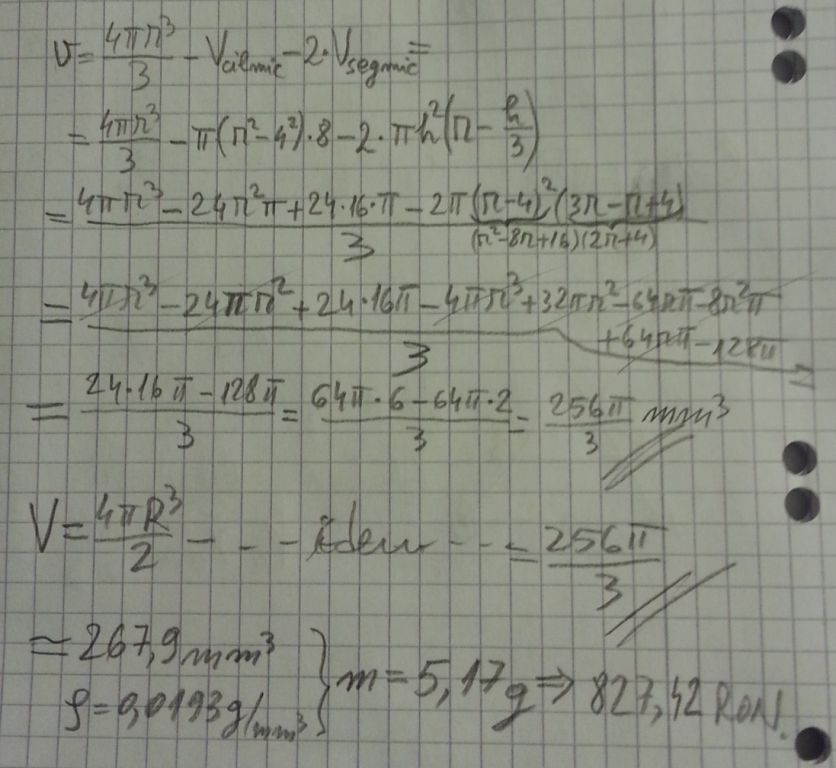 v = 4πr³/3 - Vcilmic - 2·Vsegmic =
= 4πr³/3 - π(r²-4²)·8 - 2·πh²(r - h/3)
= (4πr³ - 24r²π + 24·16·π - 2π(r-4)²(3r-r+4))/3
(r²-8r+16)(2r+4)
= (4πr³ - 24πr² + 24·16π - 4πr³ + 32πr² - 64rπ - 8r²π + 64rπ - 128π)/3 =
= (24·16π - 128π)/3 = (64π·6 - 64π·2)/3 = 256π/3 mm³
V = 4πR³/2 - - - Idem - - - = 256π/3
≃ 267,9 mm³
ρ = 0,0193 g/mm³ } m = 5,17g ⇒ 827,42 RON.